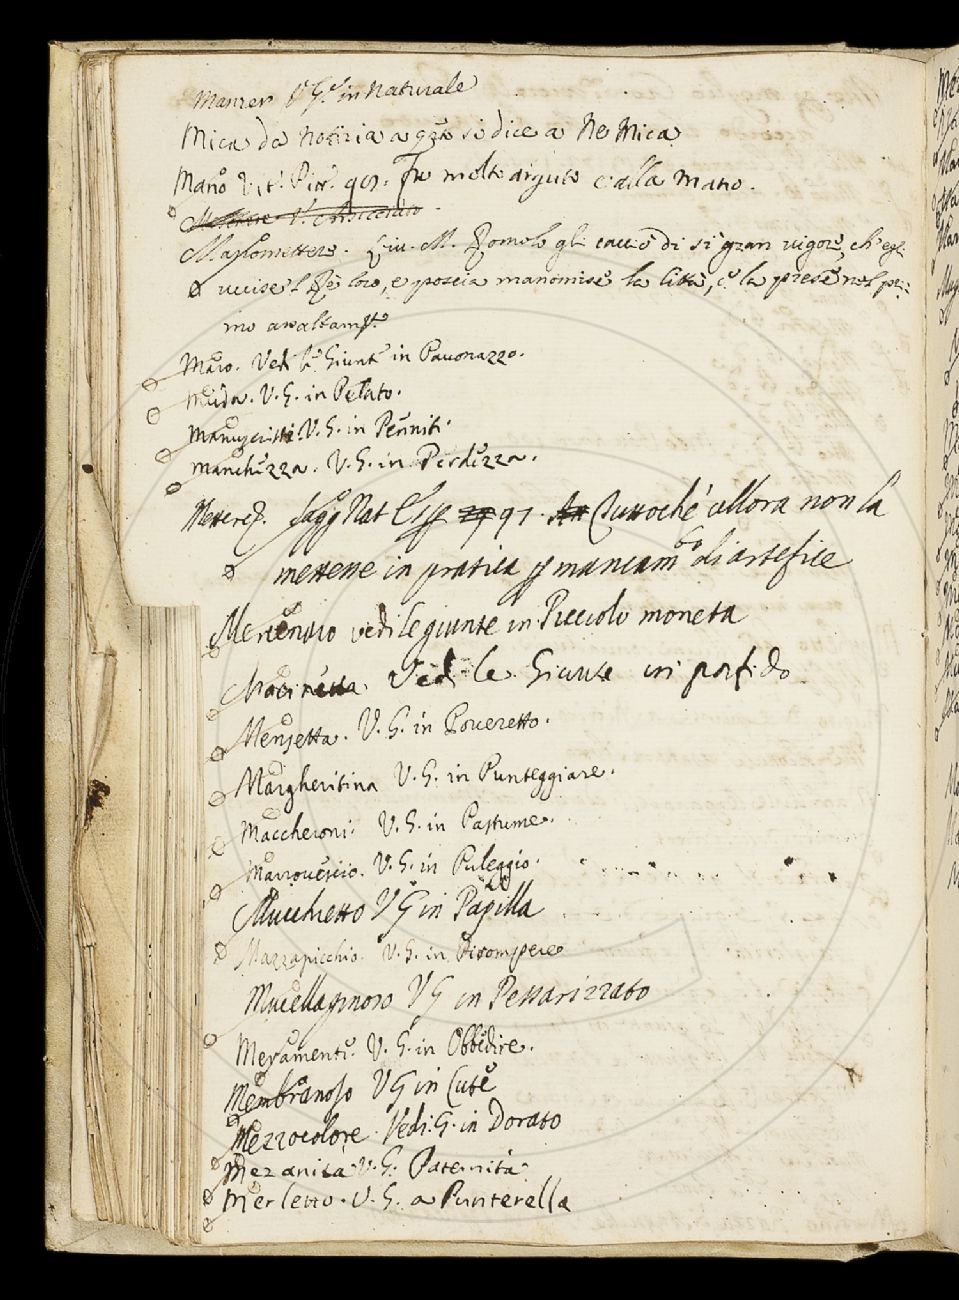 Manzer V. G. in Naturale
Mica da notizia a qto si dice a Ne Mica
Mano Vit. Pitt. 901. Fu molto arguto e alla mano.
Manomettere. Liv. M. Romolo gli cacciò di sì gran vigore, ch'egli
uccise l Re loro, e poscia manomise la Città, e la prese nel pri-
mo assaltamto
Maro. Vedi le Giunte in Pavonazzo.
Muda. V. G. in Pelato.
Manuscritti. V. G. in Penniti.
Manchezza. V. G. in Perdezza.
Mettere. Sagg Nat Esp 97. Tuttochè allora non la
mettesse in pratica p mancamto di artefice
Mercenaio vedi le giunte in Piccolo moneta
Macinetta. Vedi le Giunte in porfido
Mensetta. V. G. in Poveretto.
Margheritina V. G. in Punteggiare.
Maccheroni. V. G. in Pastume.
Marrovescio. V. G. in Puleggio.
Mucchietto V G in Papilla
Mazzapicchio. V. G. in
Mucellaginoso V G in
Meramente. V. G. in Obbedire.
Membranoso V G in Cute
Mezzocolore. Vedi. G. in Dorato
Mezanità V. G. Paternità
Merletto. V. G. a Punterella